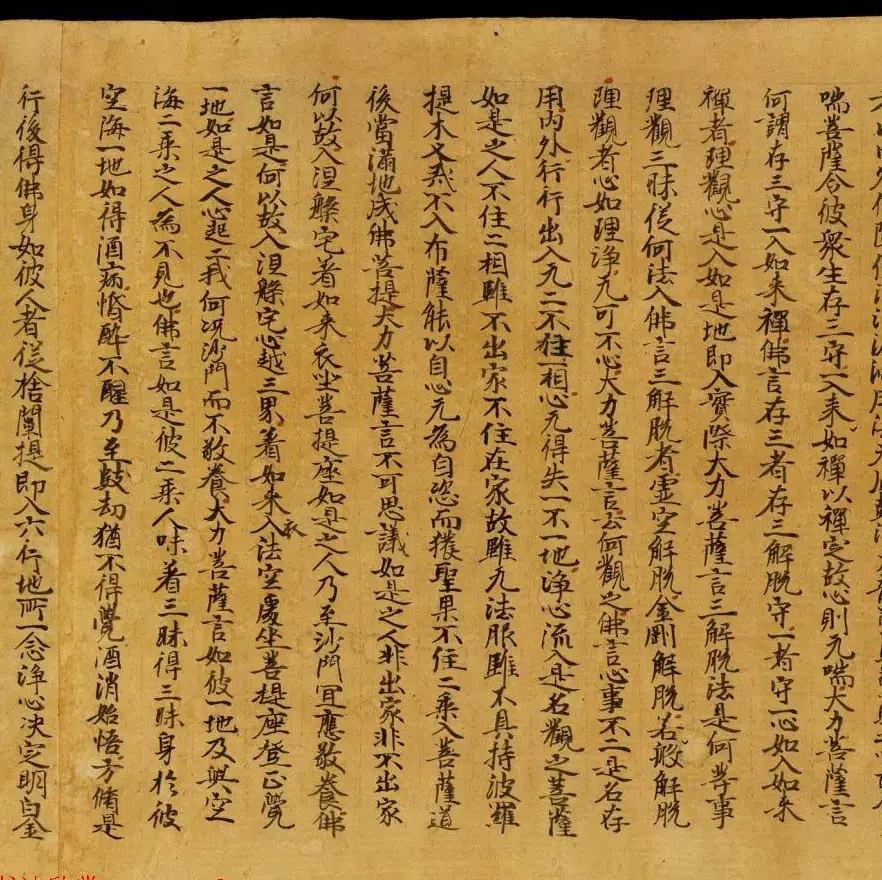 喘菩薩令彼衆生存三守一入来如禪以禪定故心則无喘大力菩薩言
何謂存三守一入如来禪佛言存三者存三解脱守一者守一心如入如来
禪者理觀心是入如是地即入實際大力菩薩言三解脱法是何等事
理觀三昧從何法入佛言三解脱者虚空解脱金剛解脱若般解脱
理觀者心如理浄无可不心大力菩薩言云何觀之佛言心事不二是名存
用内外行行出入无二不住一相心无得失一不一地浄心流入是名觀之菩薩
如是之人不住二相雖不出家不住在家故雖无法服雖不具持波羅
提木叉戒不入布薩能以自心无為自恣而獲聖果不住二乘入菩薩道
後當滿地成佛菩提大力菩薩言不可思議如是之人非出家非不出家
何以故入涅槃宅著如来衣坐菩提座如是之人乃至沙門宜應敬養佛
言如是何以故入涅槃宅心越三界著如来衣入法空處坐菩提座登正覺
一地如是之人心超二我何況沙門而不敬養大力菩薩言如彼一地及與空
海二乘之人為不見也佛言如是彼二乘人味著三昧得三昧身於彼
空海一地如得酒病惛醉不醒乃至數劫猶不得覺酒消始悟方脩是
行後得佛身如彼人者從捨闡提即入六行地所一念浄心决定明白金